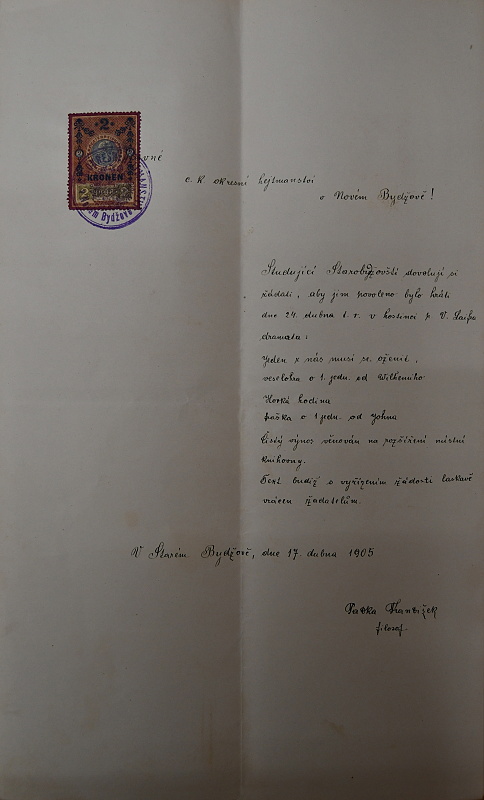 2
KRONEN
2 2
Bydžově
c. k. okresní hejtmanství
v Novém Bydžově!
Studující Starobydžovští dovolují si
žádati, aby jim povoleno bylo hráti
dne 24. dubna t. r. v hostinci p. V. Laifra
dramata:
Jeden z nás musí se oženit,
veselohra o 1. jedn. od Wilhelmiho
Horká hodina
fraška o 1 jedn. od Johna
Čistý výnos věnován na rozšíření místní
knihovny.
Text budiž s vyřízením žádosti laskavě
vrácen žadatelům.
V Starém Bydžově, dne 17. dubna 1905
František
filosof.